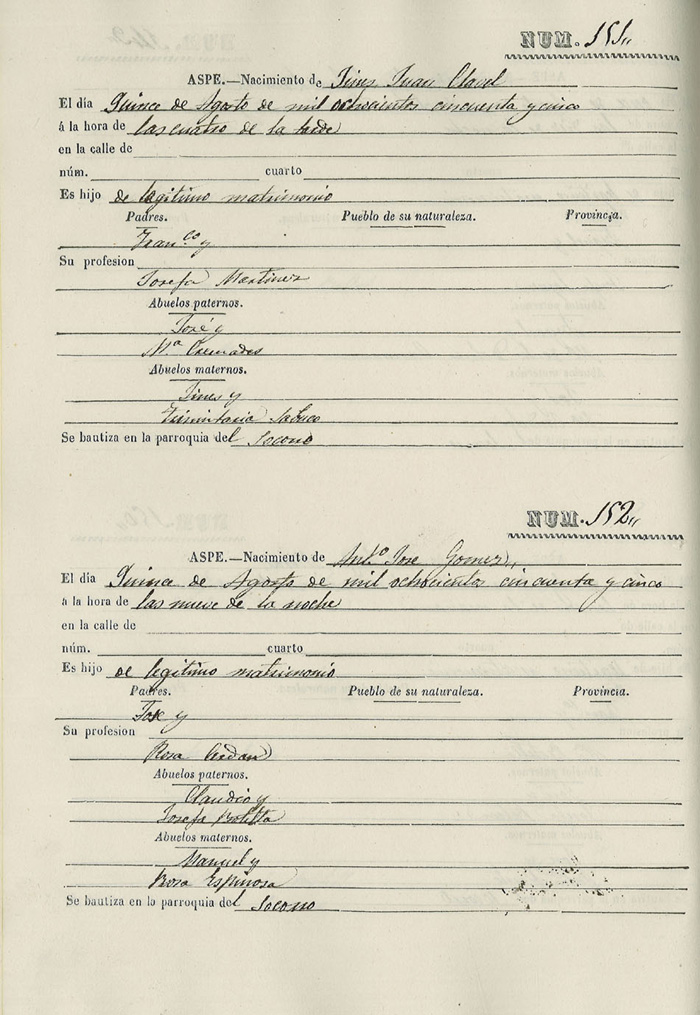 NUM. 151,,
ASPE.—Nacimiento de Gines Juan Clavel
El día Quince de Agosto de mil ochocientos cincuenta y cinco
á la hora de las cuatro de la tarde
en la calle de
núm. cuarto
Es hijo de legitimo matrimonio
Padres. Pueblo de su naturaleza. Provincia.
Fran.co y
Su profesion
Josefa Martinez
Abuelos paternos.
José y
M.a Cremades
Abuelos maternos.
Gines y
Trinitaria Sabuco
Se bautiza en la parroquia del Socorro
NUM. 152,,
ASPE.—Nacimiento de Ant.o Jose Gomez,,
El día Quince de Agosto de mil ochocientos cincuenta y cinco
á la hora de las nueve de la noche
en la calle de
núm. cuarto
Es hijo de legitimo matrimonio
Padres. Pueblo de su naturaleza. Provincia.
Jose y
Su profesion
Rosa Cerdan
Abuelos paternos.
Claudio y
Josefa Botella
Abuelos maternos.
Manuel y
Rosa Espinosa
Se bautiza en la parroquia del Socorro